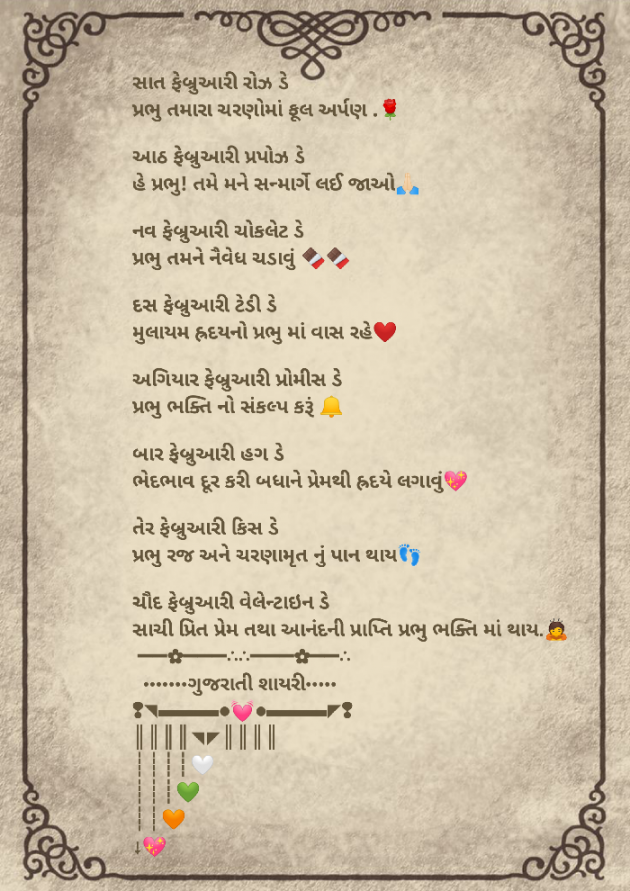 સાત ફેબ્રુઆરી રોઝ ડે
પ્રભુ તમારા ચરણોમાં ફૂલ અર્પણ .🌹
આઠ ફેબ્રુઆરી પ્રપોઝ ડે
હે પ્રભુ! તમે મને સન્માર્ગે લઈ જાઓ🙏🏻
નવ ફેબ્રુઆરી ચોકલેટ ડે
પ્રભુ તમને નૈવેધ ચડાવું 🍫🍫
દસ ફેબ્રુઆરી ટેડી ડે
મુલાયમ હ્રદયનો પ્રભુ માં વાસ રહે❤️
અગિયાર ફેબ્રુઆરી પ્રોમીસ ડે
પ્રભુ ભક્તિ નો સંકલ્પ કરૂં 🔔
બાર ફેબ્રુઆરી હગ ડે
ભેદભાવ દૂર કરી બધાને પ્રેમથી હ્રદયે લગાવું💖
તેર ફેબ્રુઆરી કિસ ડે
પ્રભુ રજ અને ચરણામૃત નું પાન થાય👣
ચૌદ ફેબ્રુઆરી વેલેન્ટાઇન ડે
સાચી પ્રિત પ્રેમ તથા આનંદની પ્રાપ્તિ પ્રભુ ભક્તિ માં થાય.🙇
━━✿━━━∴∴━━━✿━━∴
•••••••ગુજરાતી શાયરી•••••
❢◥▬▬▬●💓●▬▬▬◤❢
║║║║◥◤║║║║
┊┊┊┊🤍
┊┊┊💚
┊┊🧡
↓💖